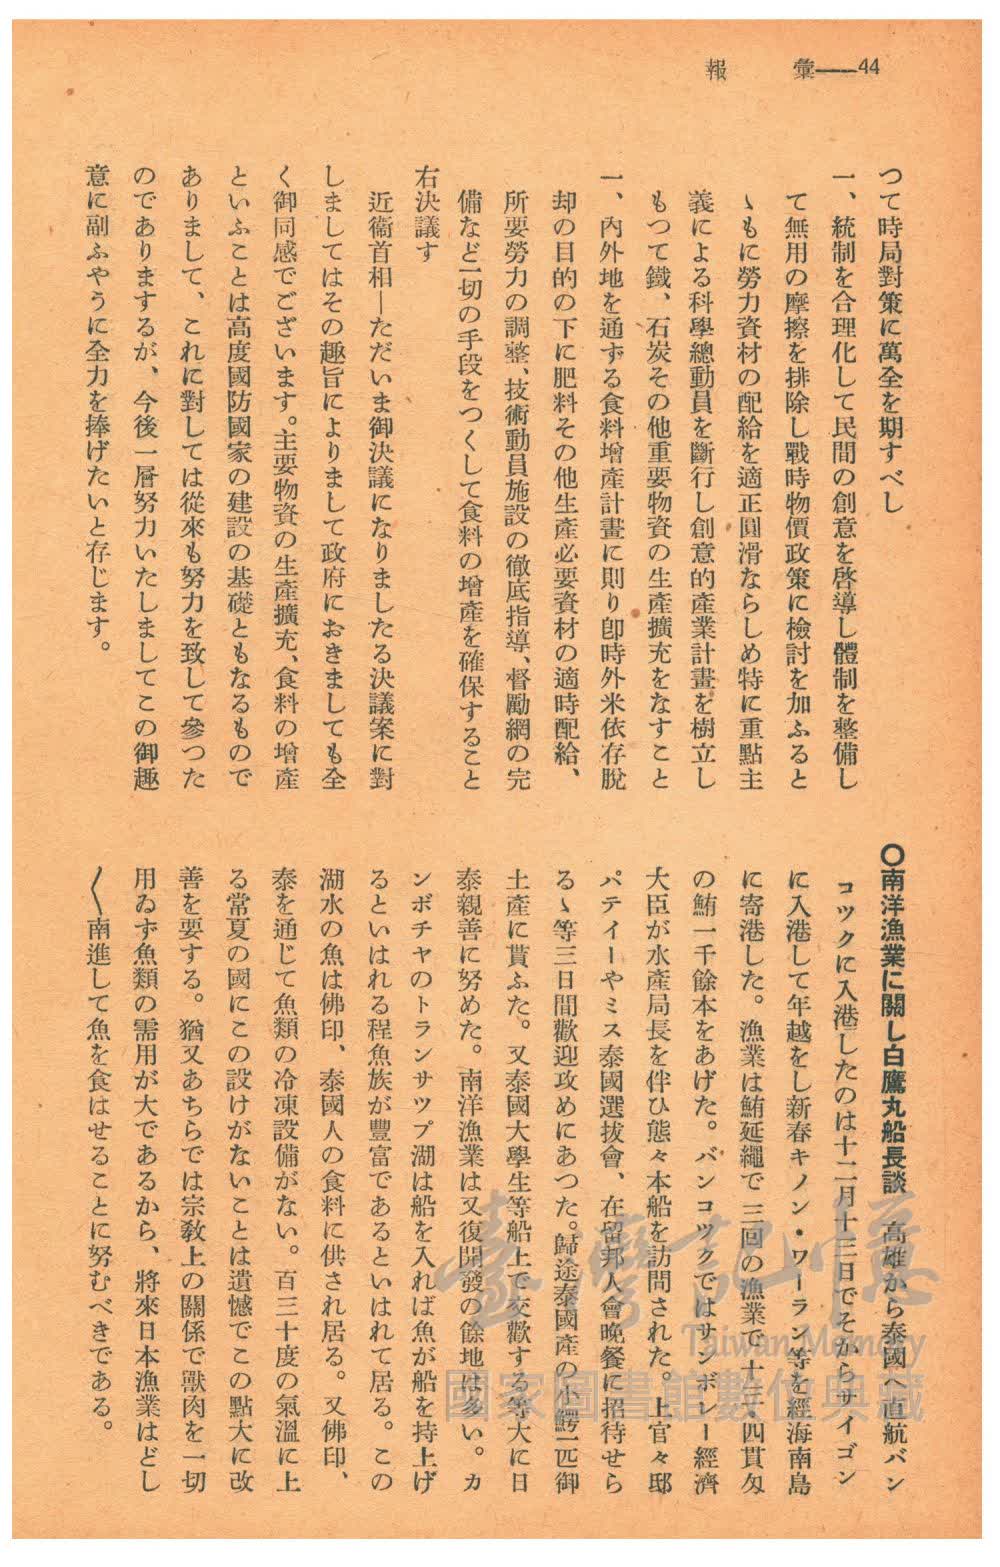 彙報——44
つて時局對策に萬全を期すべし
一、統制を合理化して民間の創意を啓導し體制を整備し
て無用の摩擦を排除し戰時物價政策に檢討を加ふると
ゝもに勞力資材の配給を適正圓滑ならしめ特に重點主
義による科學總動員を斷行し創意的產業計畫を樹立し
もつて鐵、石炭その他重要物資の生產擴充をなすこと
一、內外地を通ずる食料增產計畫に則り卽時外米依存脫
却の目的の下に肥料その他生產必要資材の適時配給、
所要勞力の調整、技術動員施設の徹底指導、督勵網の完
備など一切の手段をつくして食料の增產を確保すること
右決議す
近衞首相—ただいま御決議になりましたる決議案に對
しましてはその趣旨によりまして政府におきましても全
く御同感でございます。主要物資の生產擴充、食料の增產
といふことは高度國防國家の建設の基礎ともなるもので
ありまして、これに對しては從來も努力を致して參つた
のでありまするが、今後一層努力いたしましてこの御趣
意に副ふやうに全力を捧げたいと存じます。
〇南洋漁業に關し白鷹丸船長談　高雄から泰國へ直航バン
コツクに入港したのは十二月十三日でそからサイゴン
に入港して年越をし新春キノン・ワーラン等を經海南島
に寄港した。漁業は鮪延繩で三回の漁業で十三、四貫匁
の鮪一千餘本をあげた。バンコツクではサンボレー經濟
大臣が水產局長を伴ひ態々本船を訪問された。上官々邸
パテイーやミス泰國選拔會、在留邦人會晚餐に招待せら
るゝ等三日間歡迎攻めにあつた。歸途泰國產の小鰐一匹御
土產に貰ふた。又泰國大學生等船上で交歡する等大に日
泰親善に努めた。南洋漁業は又復開發の餘地は多い。カ
ンボチヤのトランサツプ湖は船を入れば魚が船を持上げ
るといはれる程魚族が豐富であるといはれて居る。この
湖水の魚は佛印、泰國人の食料に供され居る。又佛印、
泰を通じて魚類の冷凍設備がない。百三十度の氣溫に上
る常夏の國にこの設けがないことは遺憾でこの點大に改
善を要する。猶又あちらでは宗敎上の關係で獸肉を一切
用ゐず魚類の需用が大であるから、將來日本漁業はどし
〱南進して魚を食はせることに努むべきである。
臺灣記憶
Taiwan Memory
國家圖書館數位典藏